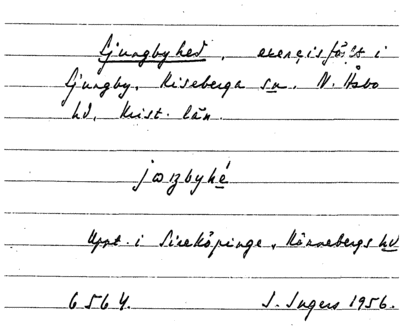 Ljungbyhed, exercisfält i
Ljungby, Riseberga sn. N. Åsbo
hd, Krist. län.
jɷŋbyhé
Uppt. i Sireköpinge, Rönnebergs hd
6564. I. Ingers 1956.